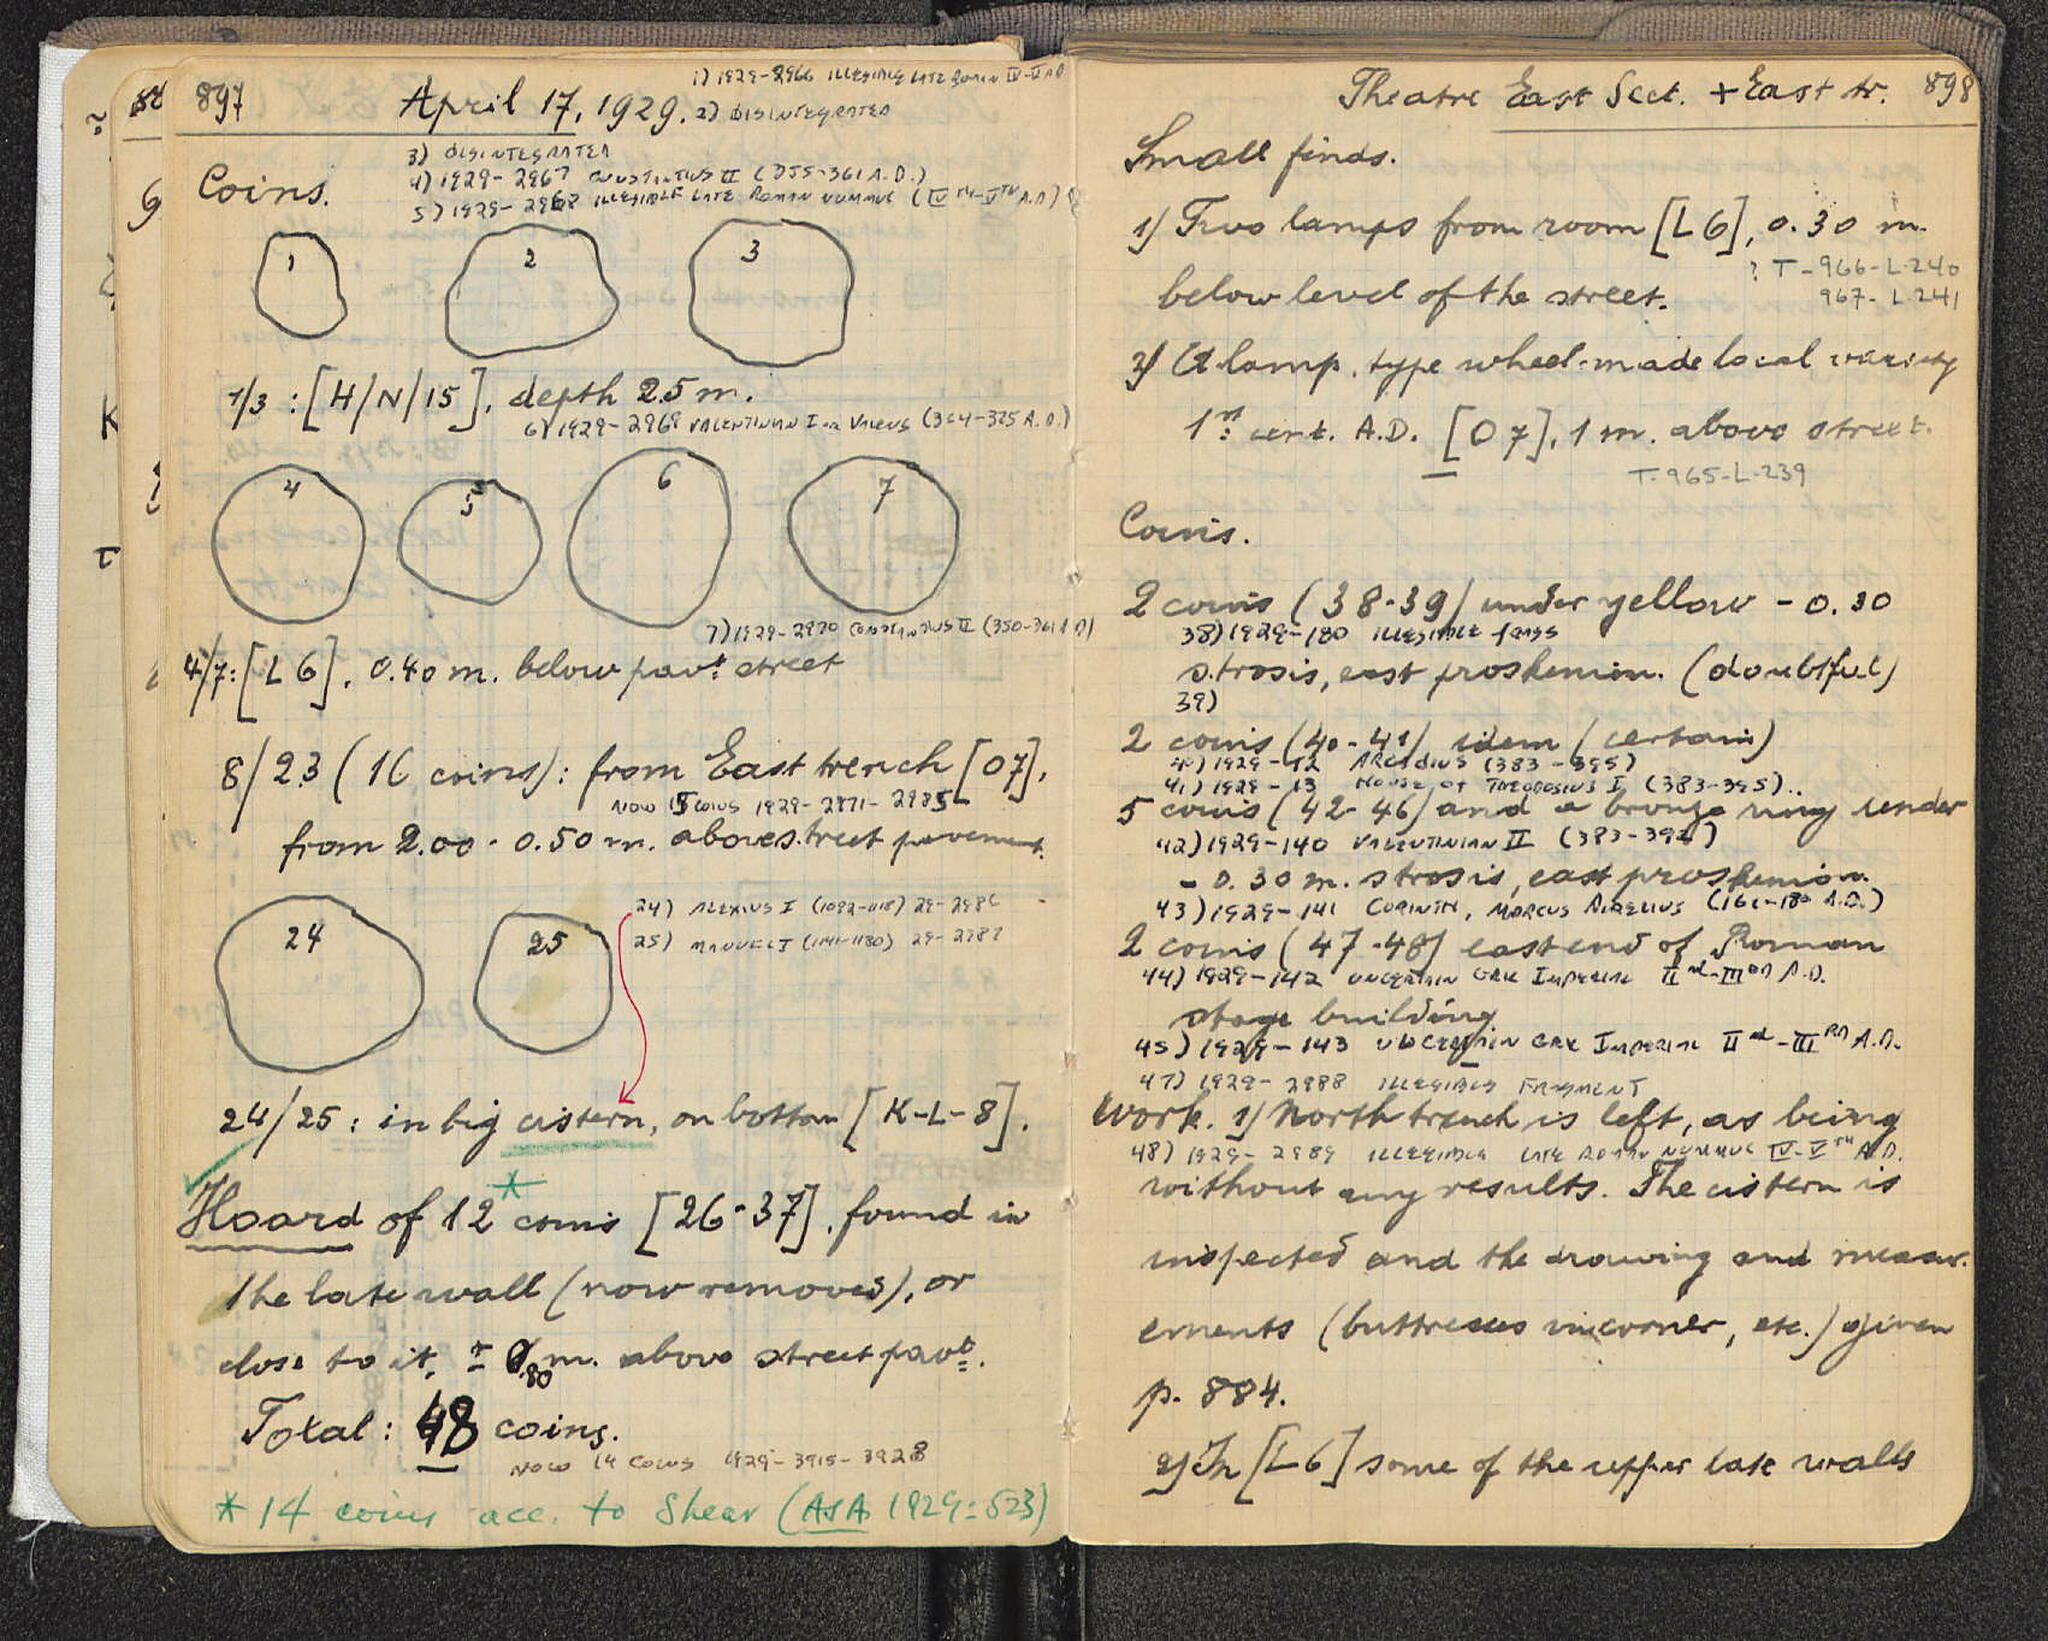 897
April 17, 1929.
1) 1929-2966 ILLEGIBLE LATE ROMAN IV-V AD
2) DISINTEGRATED
3) DISINTEGRATED
4) 1929-2967 CONSTANTIUS II (355-361 A.D.)
5) 1929-2968 ILLEGIBLE LATE ROMAN NUMMUS (IVTH-VTH A.D)
Coins.
1 2 3
1/3 : [H/N/15], depth 2.5 m.
6) 1929-2969 VALENTINIAN I OR VALENS (364-375 A.D.)
4 5 6 7
7) 1929-2970 CONSTANTIUS II (350-361 A.D)
4/7: [L 6], 0.40 m. below pavt. street
8/23 (16 coins): from East trench [O7],
NOW 15 COINS 1929-2971-2985
from 2.00 - 0.50 m. above street pavement.
24 25
24) ALEXIUS I (1092-1118) 29-2986
25) MANUEL I (1141-1180) 29-2987
24/25: in big cistern, on bottom [K-L-8].
Hoard of 12* coins [26-37], found in
the late wall (now removed), or
close to it, ± 0.80 m. above street pavt.
Total: 48 coins.
NOW 14 COINS 1929-3915-3928
* 14 coins acc. to Shear (AJA 1929: 523)
Theatre East Sect. + East tr. 898
Small finds.
1) Two lamps from room [L6], 0.30 m.
? T-966-L-240
below level of the street.
967-L-241
2) A lamp, type wheel-made local variety
1st cent. A.D. [O7], 1 m. above street.
T-965-L-239
Coins.
2 coins (38-39) under yellow - 0.30
38) 1929-180 ILLEGIBLE
strosis, east proskenion. (doubtful)
39)
2 coins (40-41) idem (certain)
40) 1929-12 ARCADIUS (383-395)
41) 1929-13 HOUSE OF THEODOSIUS I (383-395)..
5 coins (42-46) and a bronze ring under
42) 1929-140 VALENTINIAN II (383-392)
- 0.30 m. strosis, east proskenion.
43) 1929-141 CORINTH, MARCUS AURELIUS (161-180 A.D.)
2 coins (47-48) east end of Roman
44) 1929-142 UNCERTAIN GRK IMPERIAL IInd-IIIRD A.D.
stage building
45) 1929-143 UNCERTAIN GRK IMPERIAL IInd-IIIRD A.D.
47) 1929-2988 ILLEGIBLE FRAGMENT
Work. 1) North trench is left, as being
48) 1929-2989 ILLEGIBLE LATE ROMAN NUMMUS IV-VTH A.D.
without any results. The cistern is
inspected and the drawing and measur-
ements (buttresses in corner, etc.) given
p. 884.
2) In [L6] some of the upper late walls